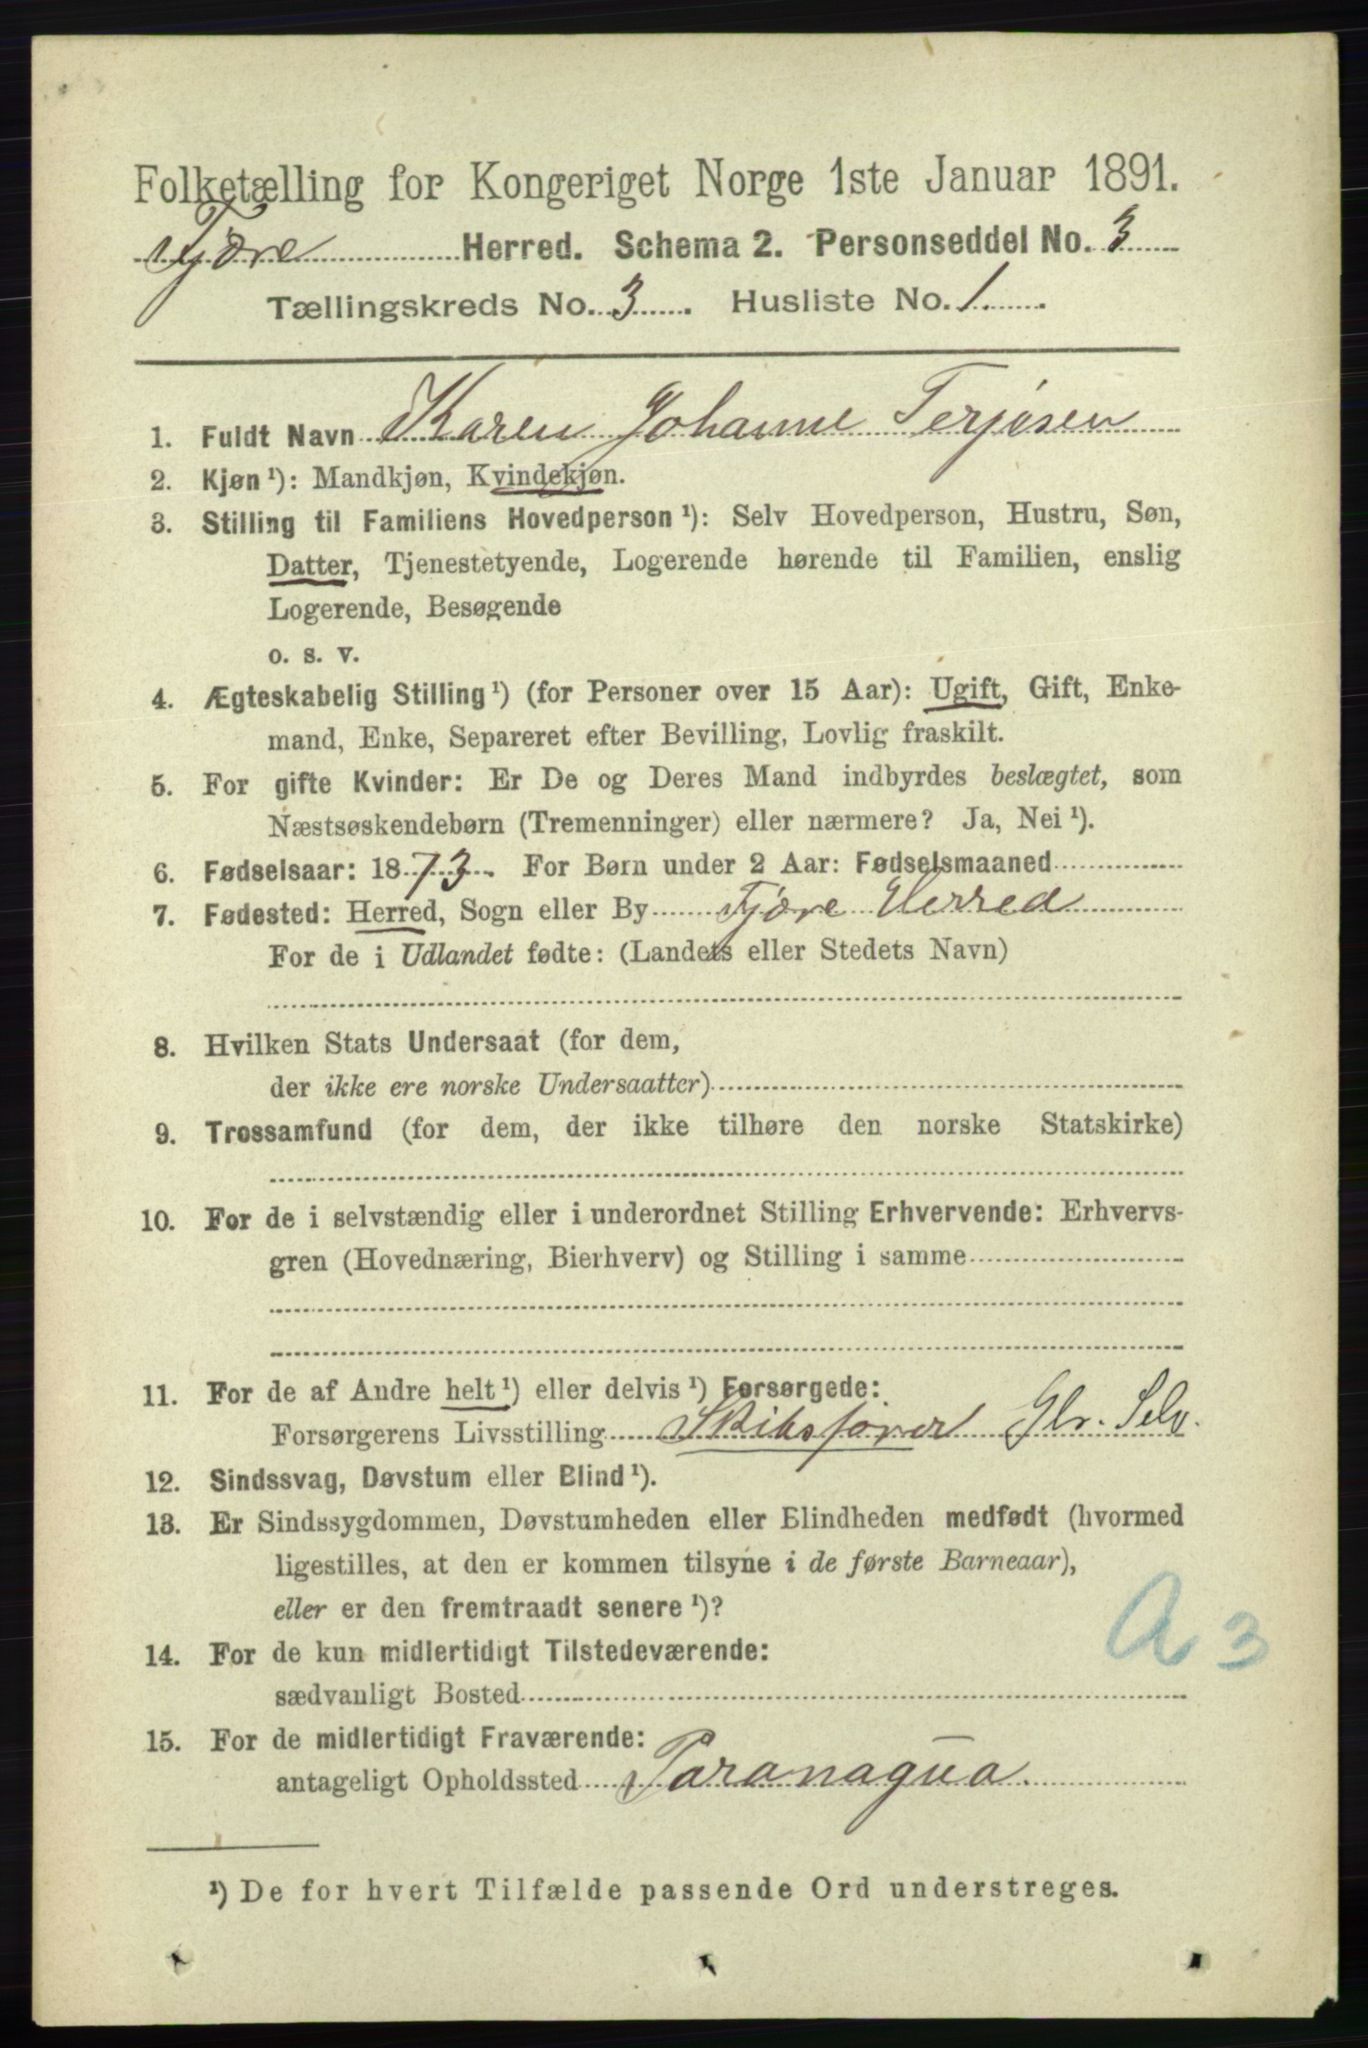 Folketælling for Kongeriget Norge 1ste Januar 1891.
Tjøre Herred. Schema 2. Personseddel No. 3
Tællingskreds No. 3. Husliste No. 1.
1. Fuldt Navn Karen Johanne Terjesen
2. Kjøn ¹): Mandkjøn, Kvindekjøn.
3. Stilling til Familiens Hovedperson ¹): Selv Hovedperson, Hustru, Søn,
Datter, Tjenestetyende, Logerende hørende til Familien, enslig
Logerende, Besøgende
o. s. v.
4. Ægteskabelig Stilling ¹) (for Personer over 15 Aar): Ugift, Gift, Enke-
mand, Enke, Separeret efter Bevilling, Lovlig fraskilt.
5. For gifte Kvinder: Er De og Deres Mand indbyrdes beslægtet, som
Næstsøskendebørn (Tremenninger) eller nærmere? Ja, Nei ¹).
6. Fødselsaar: 1873. For Børn under 2 Aar: Fødselsmaaned
7. Fødested: Herred, Sogn eller By Tjøre Herred
For de i Udlandet fødte: (Landets eller Stedets Navn)
8. Hvilken Stats Undersaat (for dem,
der ikke ere norske Undersaatter)
9. Trossamfund (for dem, der ikke tilhøre den norske Statskirke)
10. For de i selvstændig eller i underordnet Stilling Erhvervende: Erhvervs-
gren (Hovednæring, Bierhverv) og Stilling i samme
11. For de af Andre helt ¹) eller delvis ¹) Forsørgede:
Forsørgerens Livsstilling Skibsfører Slv. Selv.
12. Sindssvag, Døvstum eller Blind ¹).
13. Er Sindssygdommen, Døvstumheden eller Blindheden medfødt (hvormed
ligestilles, at den er kommen tilsyne i de første Barneaar),
eller er den fremtraadt senere ¹)?
A 3
14. For de kun midlertidigt Tilstedeværende:
sædvanligt Bosted
15. For de midlertidigt Fraværende:
antageligt Opholdssted Paranagua.
¹) De for hvert Tilfælde passende Ord understreges.